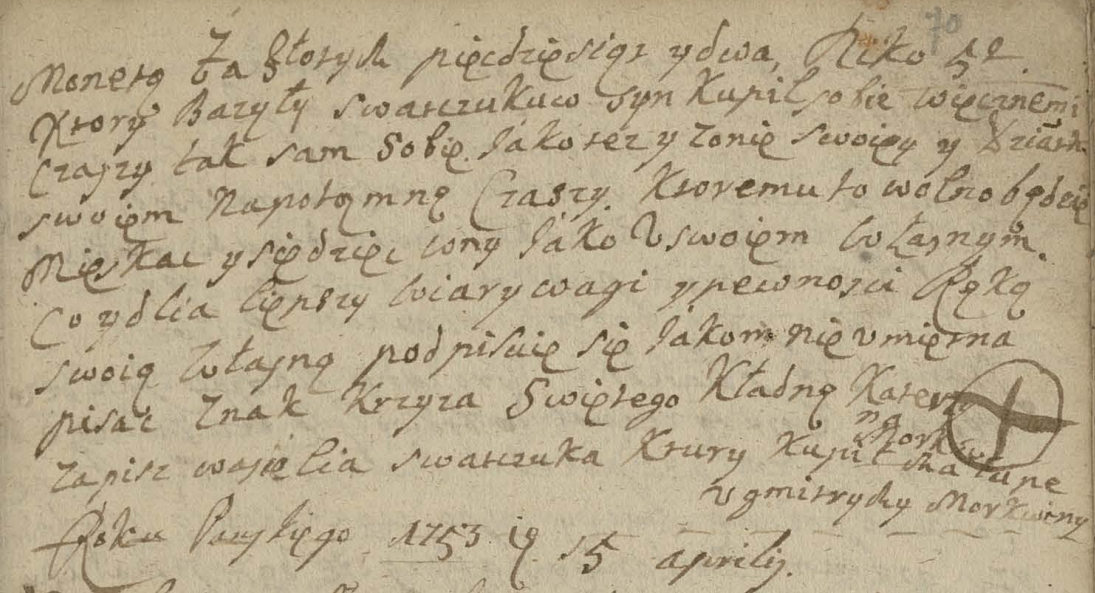 70
Monetą Za Złotych pięcdzięsiąt y dwa, Nko 52.
Ktory Bazyły swatczukuw syn Kupił sobię więcznemi
Czaszy tak sam Sobię Jako tez y zonię swoięy y Dziatk.
swoięm Napotomnę Czaszy. Ktoremu to wolno będzię
Mięskac y siędzięc wony Jako V swoięm własnym.
Co y dlia liępszy wiary wagi y pewnosci Ręką
swoią własną podpisuię się Jakom nię vmiętna
pisac znak Krzyza Swiętego Kładnę Katery
na Mork
Zapisz wasięlia swatczuka Ktury Kupił chałupe
v gmitrychy Morkwiny
Roku Panskięgo 1753 ig 15 aprilij.